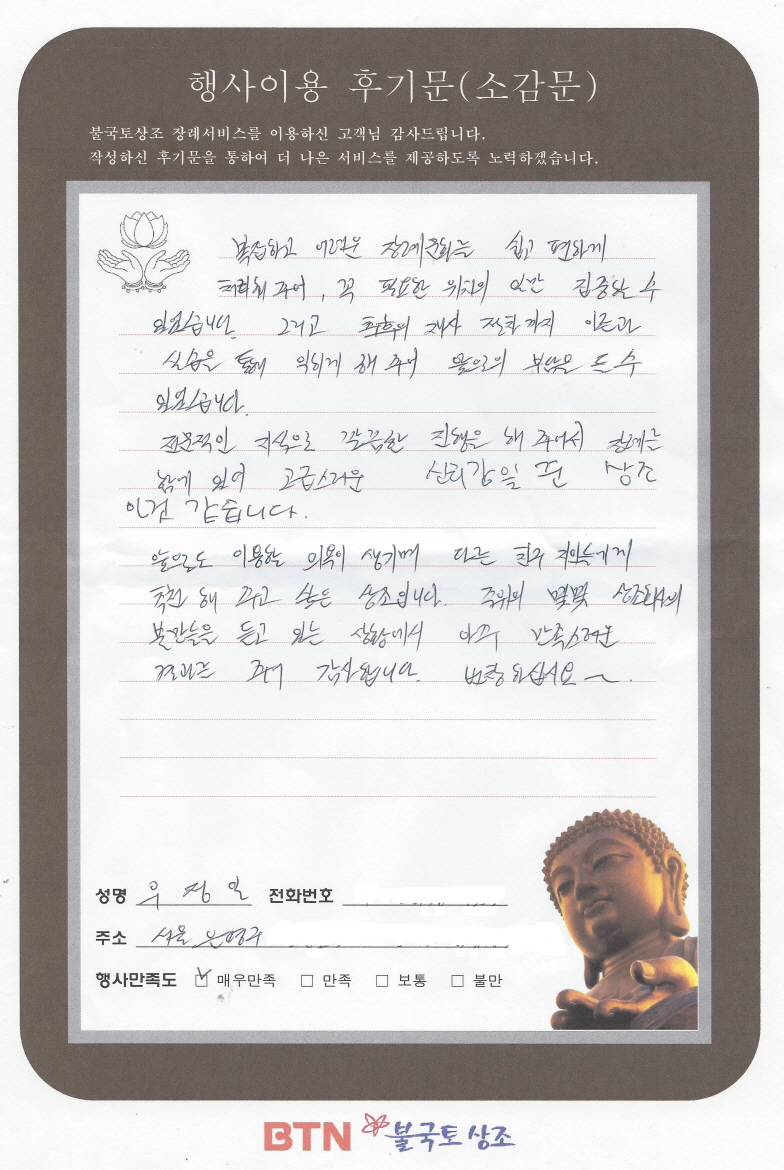 행사이용 후기문(소감문)
불국토상조 장례서비스를 이용하신 고객님 감사드립니다.
작성하신 후기문을 통하여 더 나은 서비스를 제공하도록 노력하겠습니다.
복잡하고 어려운 장례문화를 쉽고 편하게
처리해 주어, 꼭 필요한 위치의 일만 집중할 수
있었습니다. 그리고 추후의 제사 절차까지 이론과
실습을 통해 익히게 해 주어 앞으로의 부담을 든 수
있었습니다.
전문적인 지식으로 깔끔한 진행을 해 주어서 장례를
함에 있어 고급스러운 신뢰감을 준 상조
인것 같습니다.
앞으로도 이용할 의욕이 생기며 다른 친구 지인들에게
추천 해 주고 싶은 상조입니다. 주위의 몇몇 상조회사의
불만들을 듣고 있는 상황에서 아주 만족스러운
결과를 주어 감사합니다. 번창하십시요~.
성명 우정일 전화번호
주소 서울 은평구
행사만족도 매우만족 만족 보통 불만
BTN 불국토상조